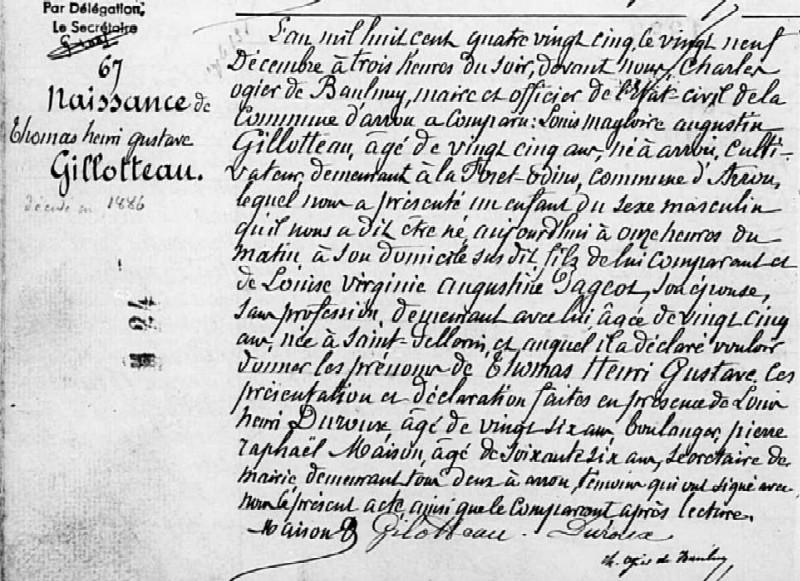 Par Délégation,
Le Secrétaire
67
Naissance de
Thomas henri gustave
Gillotteau.
décédé en 1886
L'an mil huit cent quatre vingt cinq, le vingt neuf
Décembre à trois heures du soir, devant nous, Charles
ogier de Baulny, maire et officier de l'Etat civil de la
Commune d'arrou a Comparu : Louis magloire augustin
Gillotteau, âgé de vingt cinq ans, né à arrou, culti-
vateur, demeurant à la Foret, commune d'Arrou,
lequel nous a présenté un enfant du sexe masculin
qu'il nous a dit être né aujourd'hui à onze heures du
matin à son domicile sus dit, fils de lui Comparant et
de Louise Virginie augustine, son épouse,
sans profession, demeurant avec lui, âgée de vingt cinq
ans, née à Saint-Pellerin, et auquel il a déclaré vouloir
donner les prénoms de Thomas Henri Gustave. Ces
présentation et déclaration faites en présence de Louis
henri Duroux âgé de vingt six ans, boulanger, pierre
raphaël Maison, âgé de soixante six ans, secrétaire de
mairie demeurant tous deux à arrou, témoins qui ont signé avec
nous le présent acte ainsi que le Comparant après lecture.
Maison Gilotteau. Duroux
Ch. Ogier de Baulny